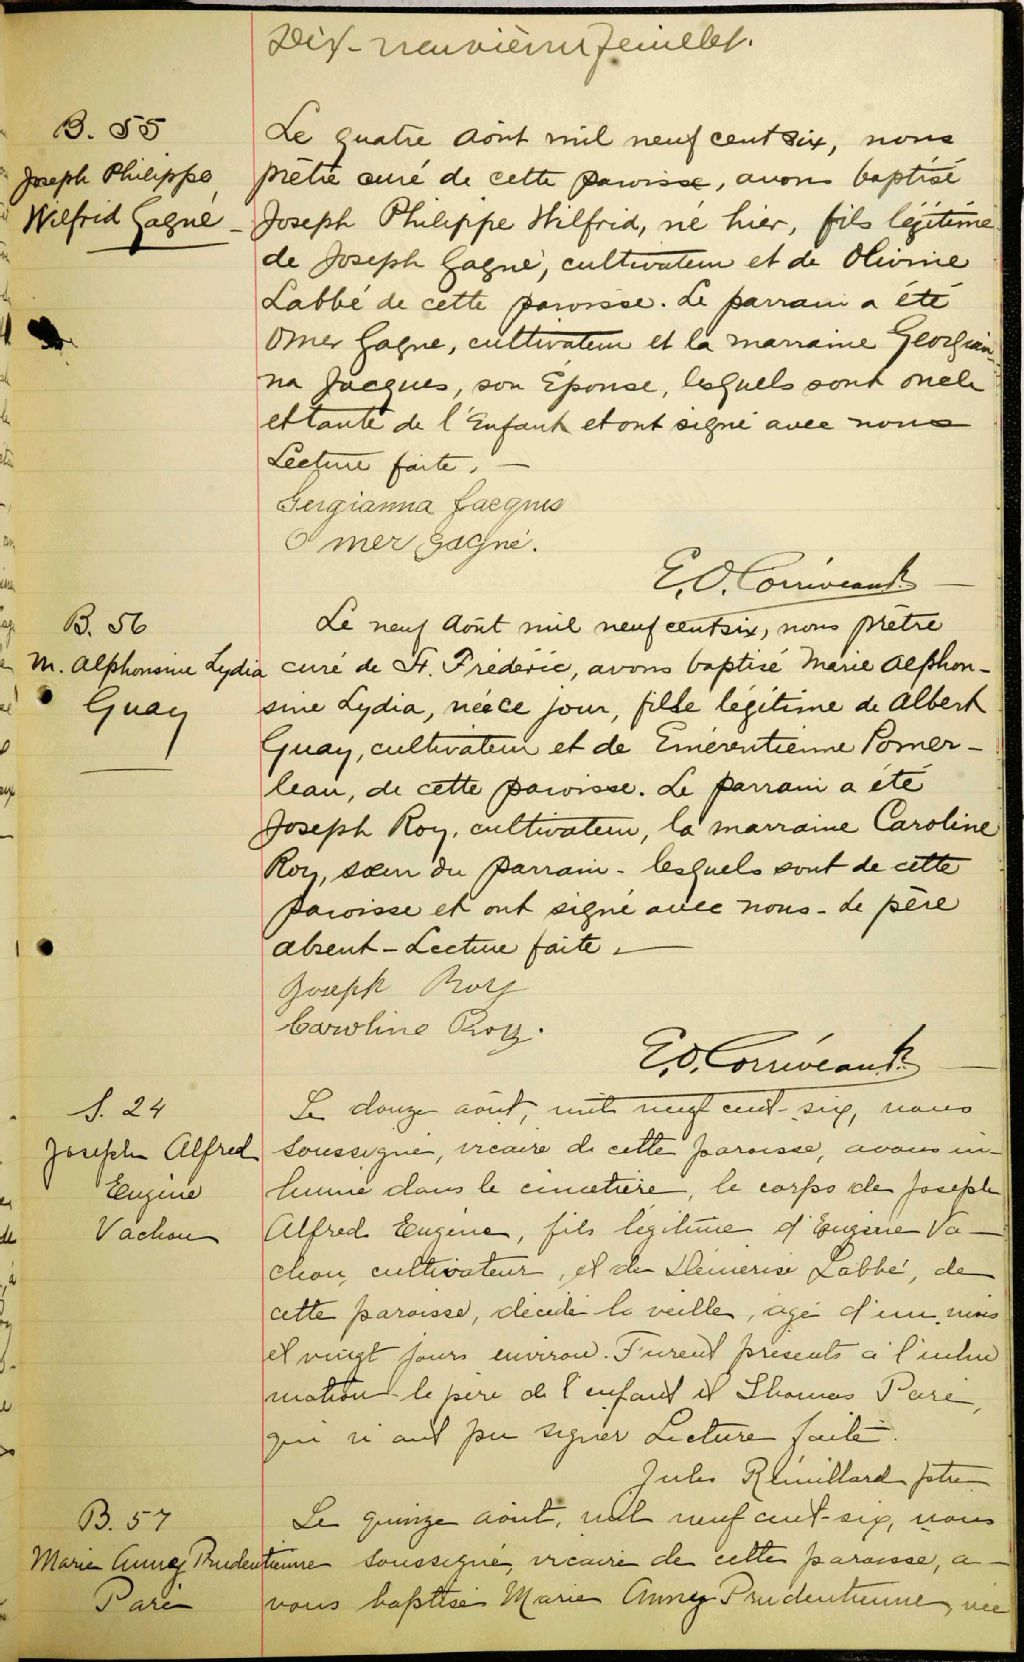 Dix-neuvième feuillet.
B. 55
Joseph Philippe
Wilfrid Gagné
Le quatre août mil neuf cent six, nous
prêtre curé de cette paroisse, avons baptisé
Joseph Philippe Wilfrid, né hier, fils légitime
de Joseph Gagné, cultivateur et de Olivine
Labbé de cette paroisse. Le parrain a été
Omer Gagné, cultivateur et la marraine Georgian-
na Jacques, son Épouse, lesquels sont oncle
et tante de l'Enfant et ont signé avec nous
Lecture faite. —
Gergianna Jacques
Omer Gagné.
E. O. Corriveau Ptr
B. 56
M. Alphonsine Lydia
Guay
Le neuf Août mil neuf cent six, nous prêtre
curé de St. Frédéric, avons baptisé Marie Alphon-
sine Lydia, née ce jour, fille légitime de Albert
Guay, cultivateur et de Emérentienne Pomer-
leau, de cette paroisse. Le parrain a été
Joseph Roy, cultivateur, la marraine Caroline
Roy, sœur du parrain - lesquels sont de cette
paroisse et ont signé avec nous - Le père
absent - Lecture faite. —
Joseph Roy
Caroline Roy.
E. O. Corriveau Ptr
S. 24
Joseph Alfred
Eugène
Vachon
Le douze août, mil neuf cent-six, nous
soussigné, vicaire de cette paroisse, avons in-
humé dans le cimetière, le corps de Joseph
Alfred Eugène, fils légitime d'Eugène Va-
chon, cultivateur, et de Démérise Labbé, de
cette paroisse, décédé la veille, agé d'un mois
et vingt jours environ. Furent présents à l'inhu
mation le père de l'enfant et Thomas Paré,
qui n'ont pu signer Lecture faite.
Jules Rémillard ptre
B. 57
Marie Anny Prudentienne
Paré
Le quinze août, mil neuf cent-six, nous
soussigné, vicaire de cette paroisse, a-
vons baptisé Marie Anny Prudentienne, née